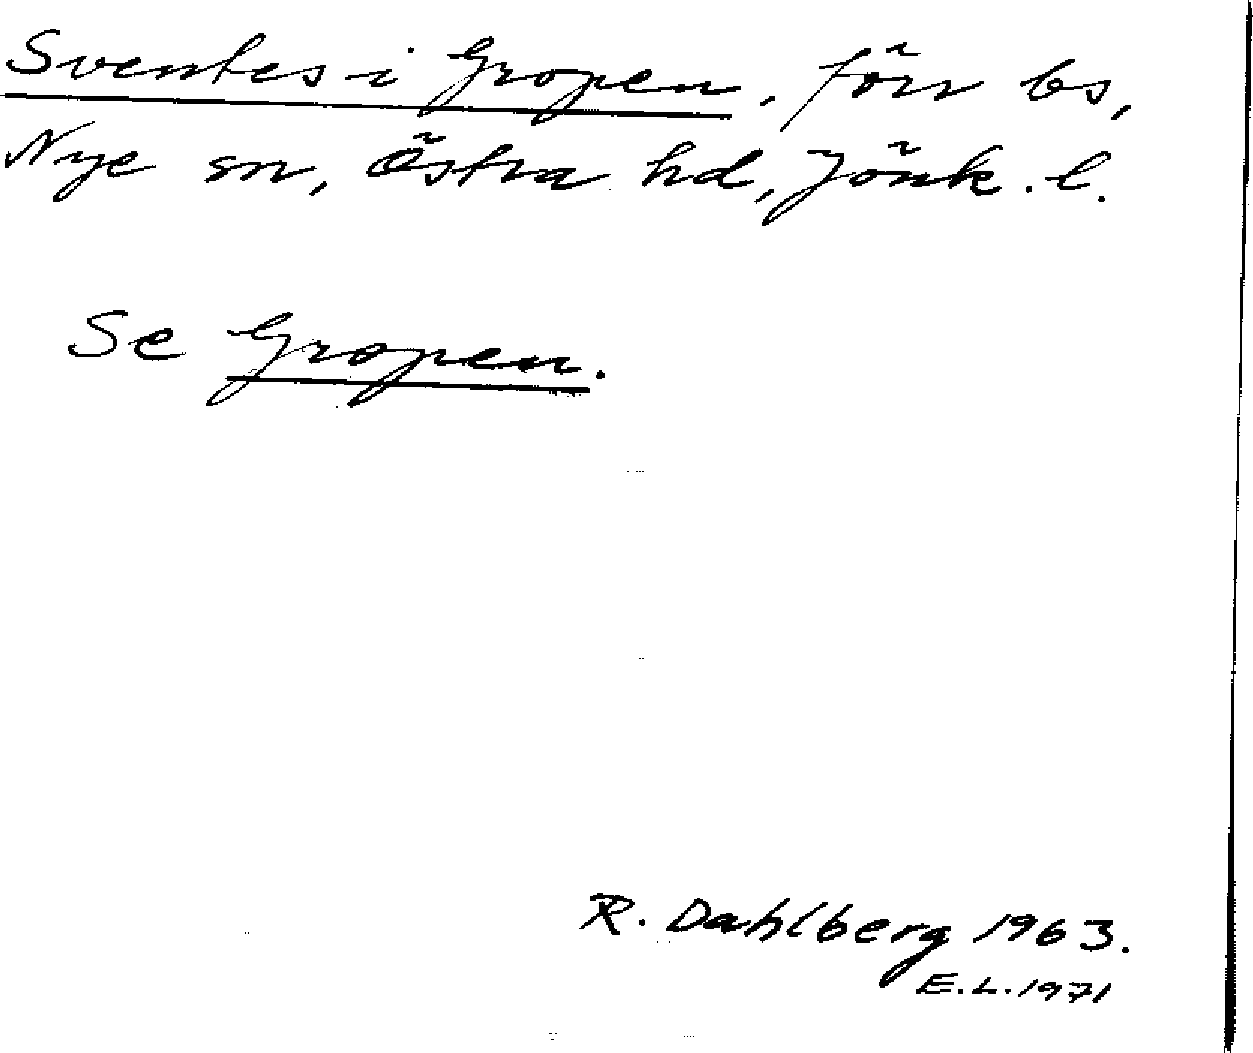 Sventes i Gropen, förr bs,
Nye sn, Östra hd, Jönk. l.
Se Gropen.
R. Dahlberg 1963.
E.L. 1971